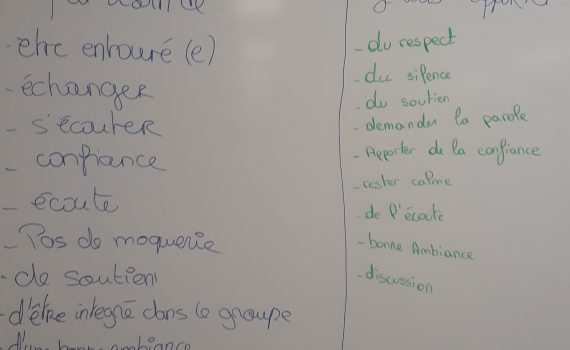 j'ai besoin de :
- être entouré(e)
- échanger
- s'écouter
- confiance
- écoute
- Pas de moquerie
- de soutien
- d'être integré dans le groupe
- d'une bonne ambiance
- du respect
- du silence
- du soutien
- demander la parole
- Apporter de la confiance
- rester calme
- de l'écoute
- bonne Ambiance
- discussion